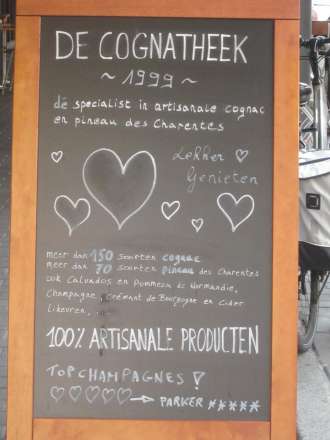 DE COGNATHEEK
~ 1999 ~
dé specialist in artisanale cognac
en pineau des Charentes
Lekker
Genieten
meer dan 150 soorten cognac
meer dan 70 soorten pineau des Charentes
ook Calvados en Pommeau de Normandie,
Champagne, Crémant de Bourgogne en Cider
Likeuren,
100% ARTISANALE PRODUCTEN
TOPCHAMPAGNES!
PARKER *****